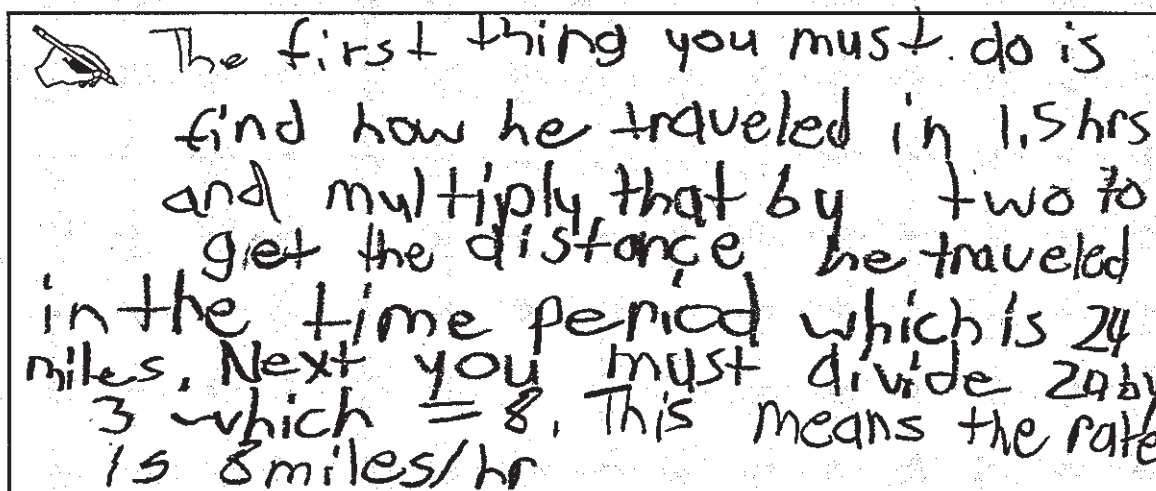 The first thing you must do is
find how he traveled in 1.5 hrs
and multiply that by two to
get the distance he traveled
in the time period which is 24
miles. Next you must divide 24 by
3 which = 8. This means the rate
is 8 miles/hr